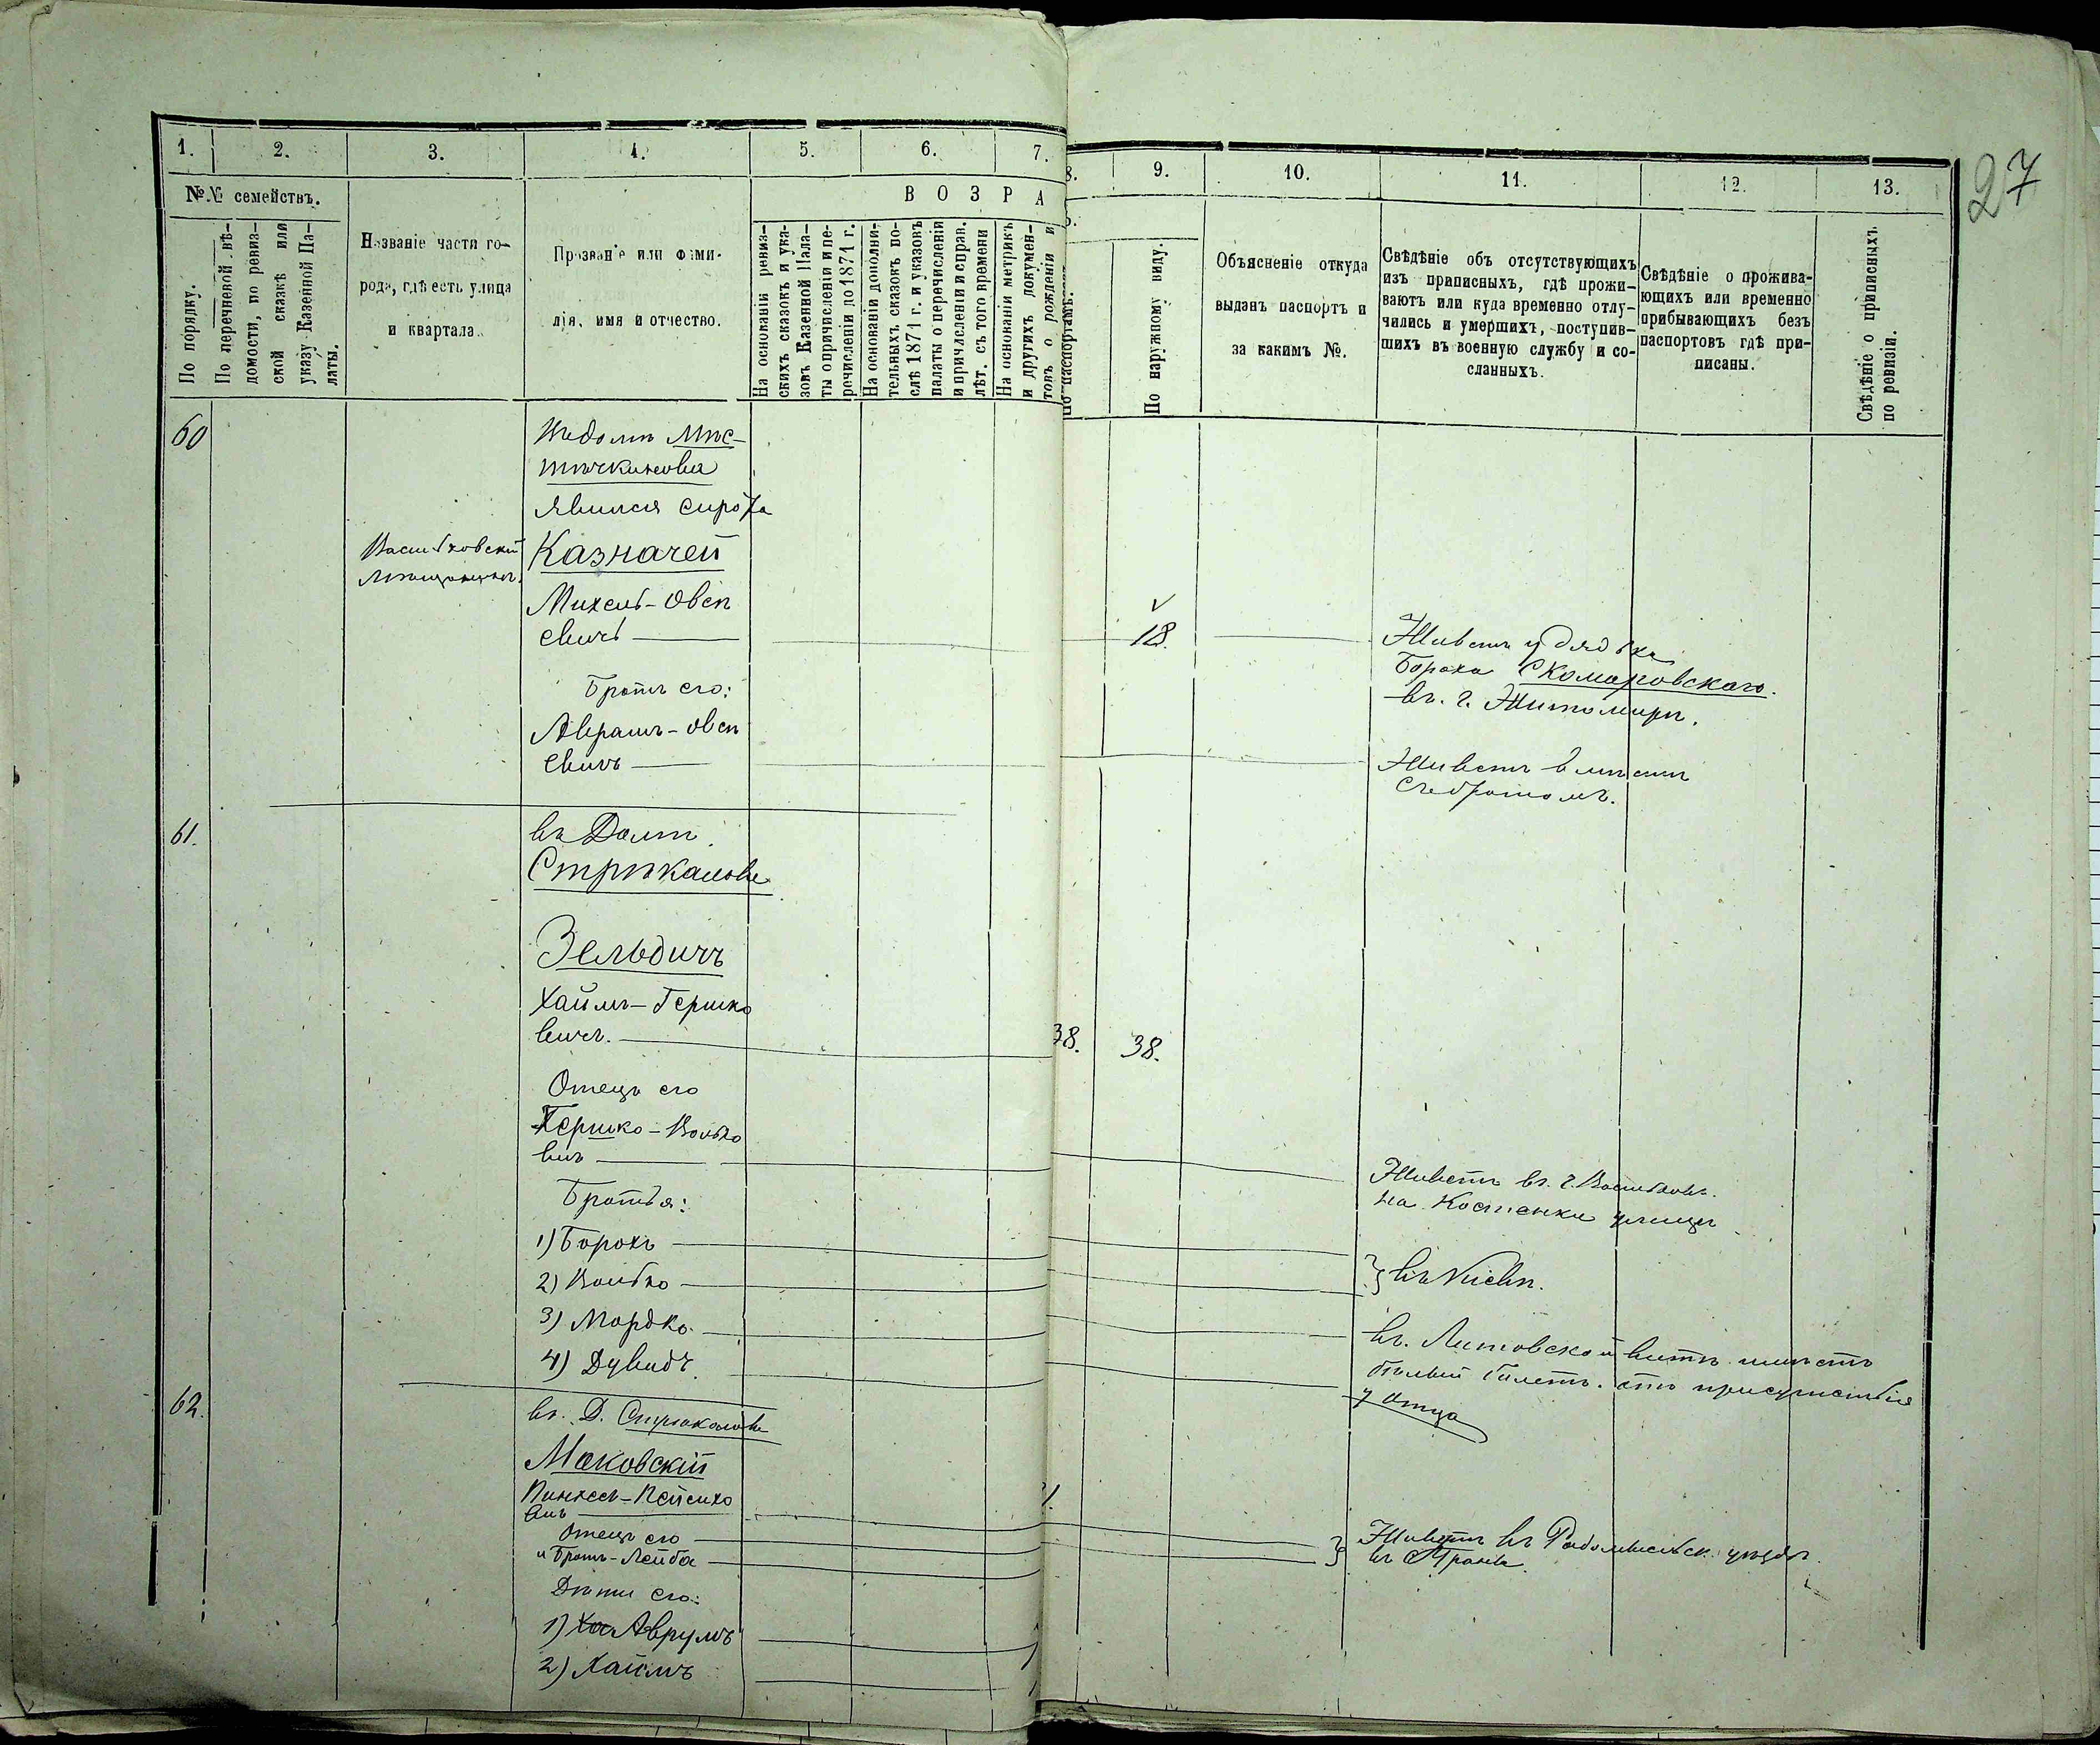 27
1. 2. 3. 4. 5. 6. 7.
8. 9. 10. 11. 12. 13.
№№ семействъ.
По порядку.
По перечневой вѣ-
домости, по ревиз-
ской сказкѣ или
указу Казенной Па-
латы.
Названіе части го-
рода, гдѣ есть улица
и квартала.
Прозваніе или фами-
лія, имя и отчество.
В О З Р А
На основаніи ревиз-
скихъ сказокъ и ука-
зовъ Казенной Пала-
ты о причисленіи и пе-
речисленіи до 1871 г.
На основаніи дополни-
тельныхъ сказокъ по-
слѣ 1871 г. и указовъ
палаты о перечисленіи
и причисленіи и справ.
лѣт. съ того времени
На основаніи метрикъ
и другихъ докумен-
товъ о рожденіи и
По паспортамъ.
По наружному виду.
Объясненіе откуда
выданъ паспортъ и
за какимъ №.
Свѣдѣніе объ отсутствующихъ
изъ приписныхъ, гдѣ прожи-
ваютъ или куда временно отлу-
чились и умершихъ, поступив-
шихъ въ военную службу и со-
сланныхъ.
Свѣдѣніе о прожива-
ющихъ или временно
прибывающихъ безъ
паспортовъ гдѣ при-
писаны.
Свѣдѣніе о приписныхъ
по ревизіи.
60
явился сирота
Васильковскій
Казначей
Михель-Овсѣ
евичъ
18.
Живетъ у дядька
Бороха Скомаровскаго.
въ. г. Житомирѣ.
Братъ его:
Аврамъ-Овсѣ
евичъ
Живетъ вмѣстѣ
съ братомъ.
61.
въ Домѣ
Стрѣкалове
Зельдичъ
Хаймъ-Гершко
вичъ.
38. 38.
Отецъ его
Гершко-Волько
вичъ
Живетъ въ. г. Васильковѣ.
на
Братья:
1) Борохъ
2) Волько
въ Кіевѣ.
3) Мордко
въ. Литовской
билетъ. отъ присутствія
4) Дувидъ
у отца
62.
въ. Д. Стрѣкалове
Маковскій
Пинхесъ-Пейсихо
вичъ
Отецъ его
и Братъ-Лейба
Живетъ въ Радомысльск. уѣздѣ.
Дѣти его:
1) Аврумъ
2) Хаимъ